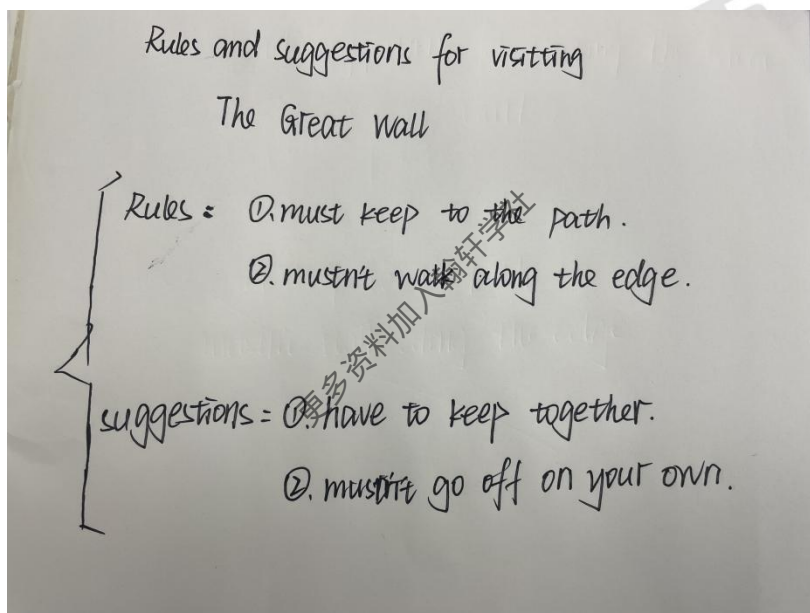 Rules and suggestions for visitting
The Great Wall
Rules: ①.must keep to the path.
②.mustn't walk along the edge.
suggestions: ①.have to keep together.
②.mustn't go off on your own.
更多资料加入翰轩学社